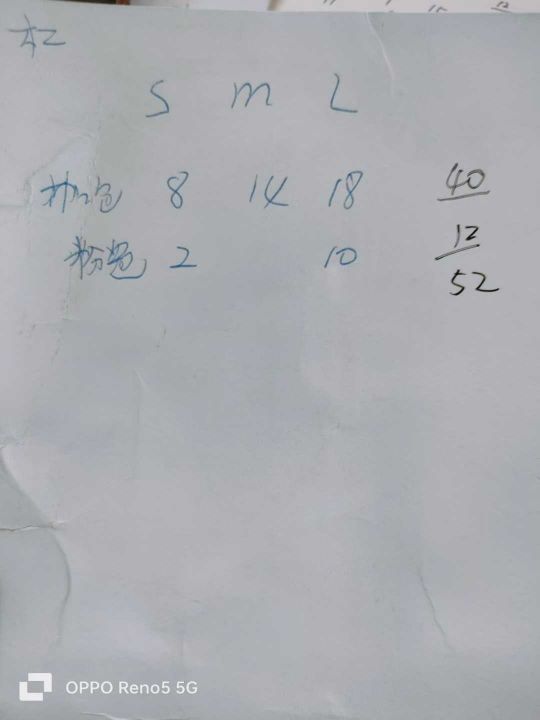 S m L
色 8 14 18 40
粉色 2 10 12
52
OPPO Reno5 5G